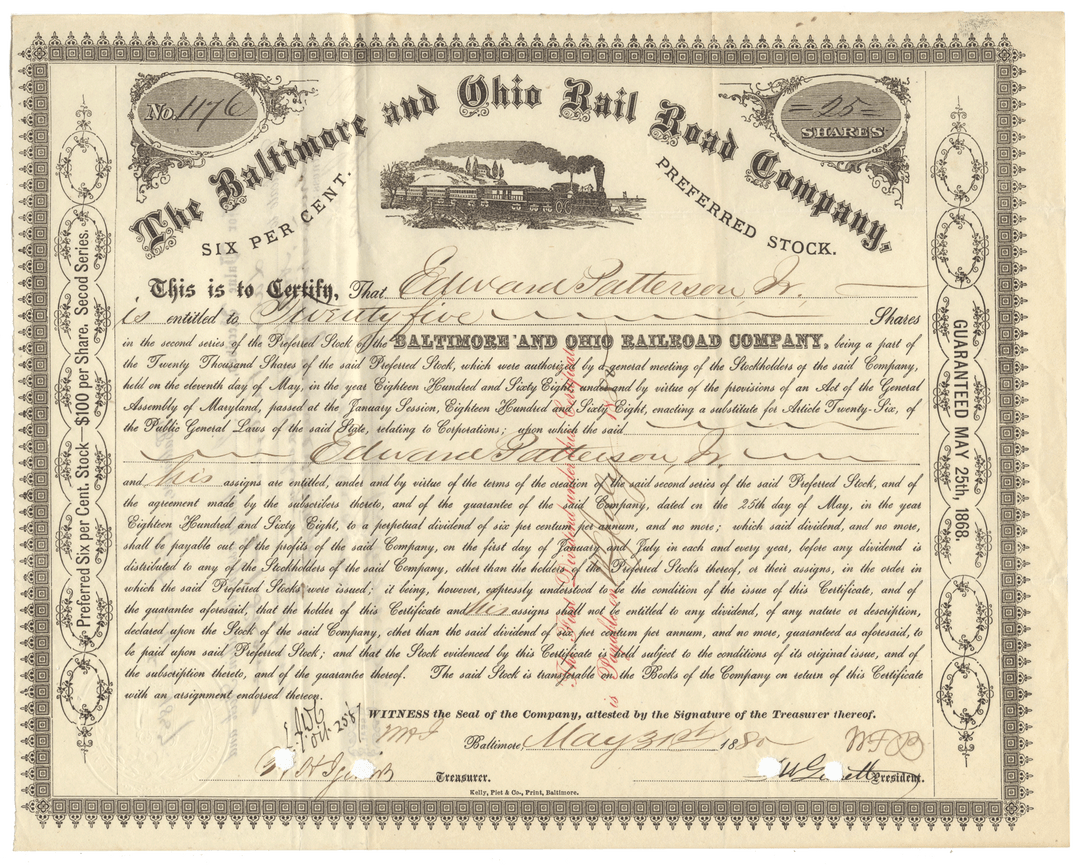 No. 1176
=25=
SHARES
The Baltimore and Ohio Rail Road Company,
SIX PER CENT.
PREFERRED STOCK.
This is to Certify, That Edward Patterson, Jr.,
is entitled to Twenty five Shares
in the second series of the Preferred Stock of the BALTIMORE AND OHIO RAILROAD COMPANY, being a part of
the Twenty Thousand Shares of the said Preferred Stock, which were authorized by a general meeting of the Stockholders of the said Company,
held on the eleventh day of May, in the year Eighteen Hundred and Sixty Eight, under and by virtue of the provisions of an Act of the General
Assembly of Maryland, passed at the January Session, Eighteen Hundred and Sixty Eight, enacting a substitute for Article Twenty-Six, of
the Public General Laws of the said State, relating to Corporations; upon which the said
Edward Patterson, Jr.
and his assigns are entitled, under and by virtue of the terms of the creation of the said second series of the said Preferred Stock, and of
the agreement made by the subscribers thereto, and of the guarantee of the said Company, dated on the 25th day of May, in the year
Eighteen Hundred and Sixty Eight, to a perpetual dividend of six per centum per annum, and no more; which said dividend, and no more,
shall be payable out of the profits of the said Company, on the first day of January and July in each and every year, before any dividend is
distributed to any of the Stockholders of the said Company, other than the holders of the Preferred Stocks thereof, or their assigns, in the order in
which the said Preferred Stocks were issued; it being, however, expressly understood to be the condition of the issue of this Certificate, and of
the guarantee aforesaid, that the holder of this Certificate and his assigns shall not be entitled to any dividend, of any nature or description,
declared upon the Stock of the said Company, other than the said dividend of six per centum per annum, and no more, guaranteed as aforesaid, to
be paid upon said Preferred Stock; and that the Stock evidenced by this Certificate is held subject to the conditions of its original issue, and of
the subscription thereto, and of the guarantee thereof. The said Stock is transferable on the Books of the Company on return of this Certificate
with an assignment endorsed thereon.
WITNESS the Seal of the Company, attested by the Signature of the Treasurer thereof.
Baltimore, May 31st 1880
Treasurer.
President.
Kelly, Piet & Co., Print, Baltimore.
Preferred Six per Cent. Stock $100 per Share. Secod Series.
GUARANTEED MAY 25th, 1868.
The First Dividend under this Certificate
is Payable in July